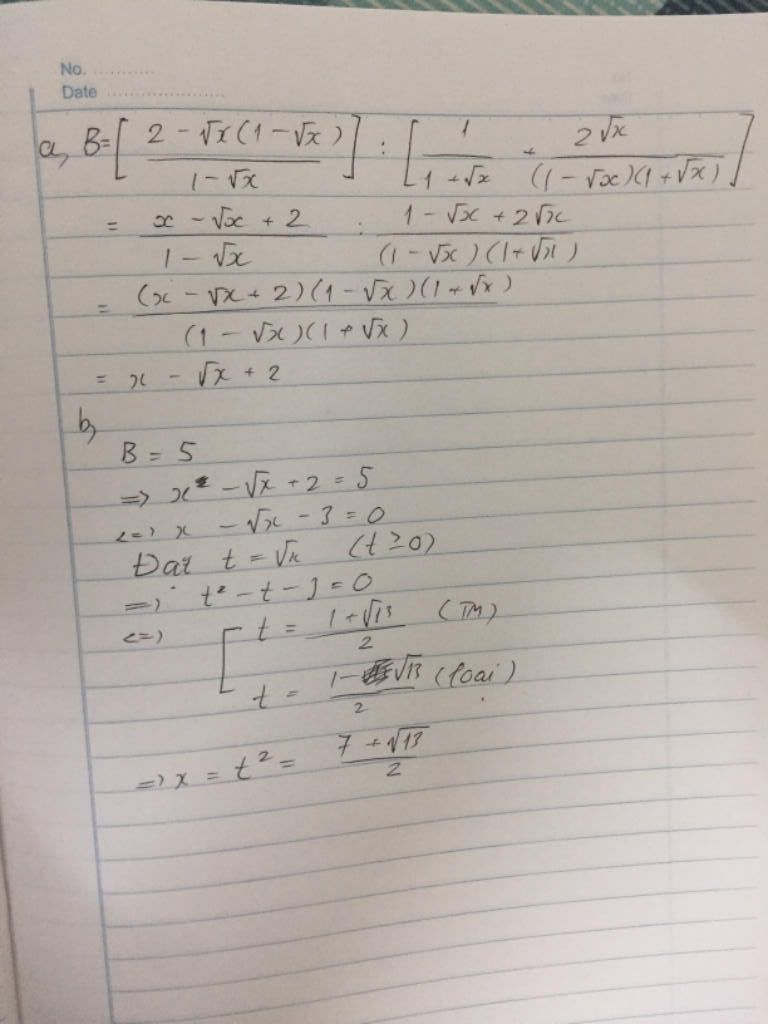 No. ............
Date ........................
a, B = [ (2 - √x(1 - √x)) / (1 - √x) ] : [ 1 / (1 + √x) + 2√x / ((1 - √x)(1 + √x)) ]
= (x - √x + 2) / (1 - √x) : (1 - √x + 2√x) / ((1 - √x)(1 + √x))
= ((x - √x + 2)(1 - √x)(1 + √x)) / ((1 - √x)(1 + √x))
= x - √x + 2
b,
B = 5
=> x - √x + 2 = 5
<=> x - √x - 3 = 0
Đặt t = √x (t ≥ 0)
=> t² - t - 3 = 0
<=> [ t = (1 + √13) / 2 (TM)
t = (1 - √13) / 2 (loại)
=> x = t² = (7 + √13) / 2